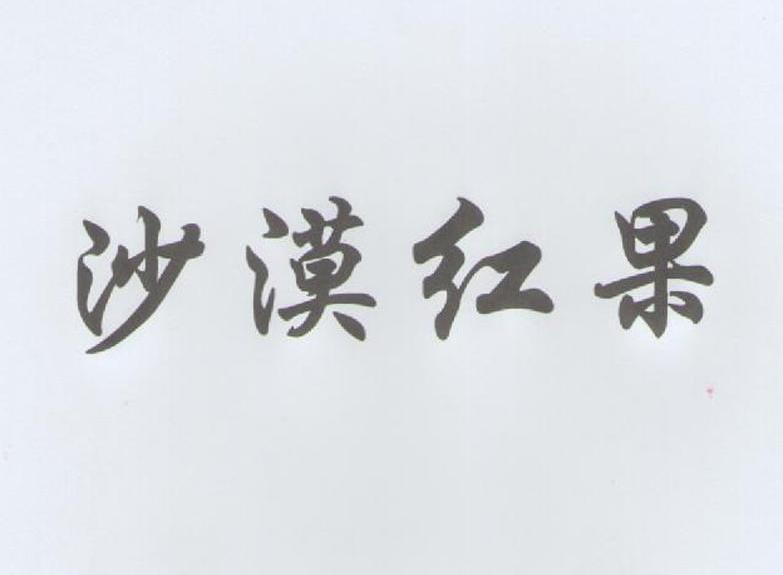 沙漠红果